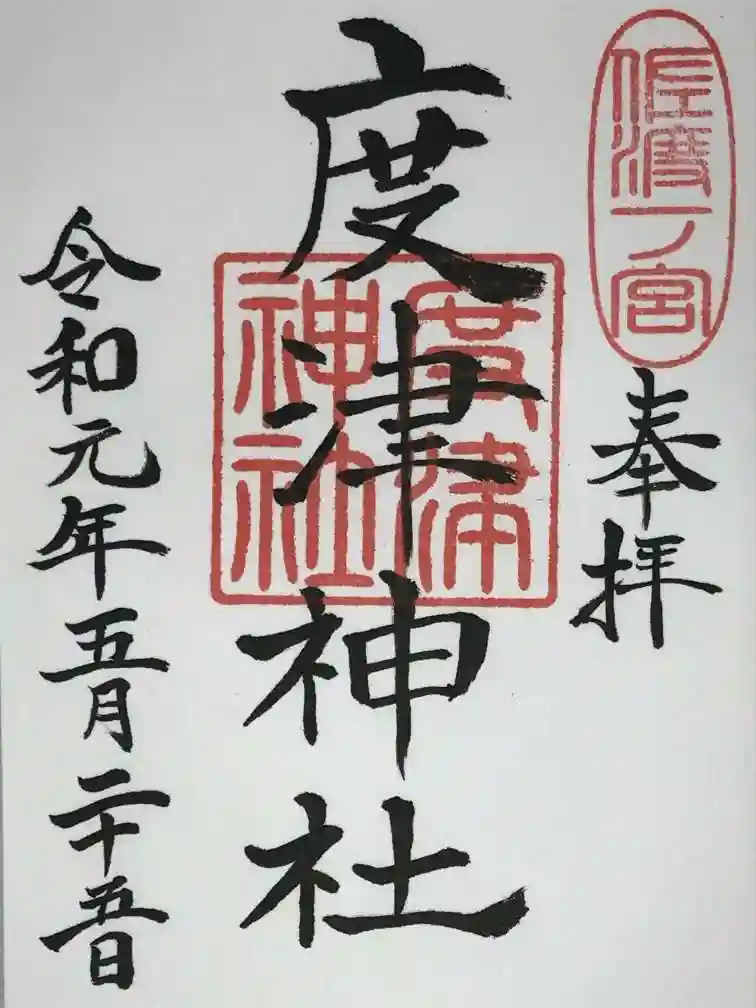 佐渡一ノ宮
奉拝
度津神社
度津
神社
令和元年五月二十五日